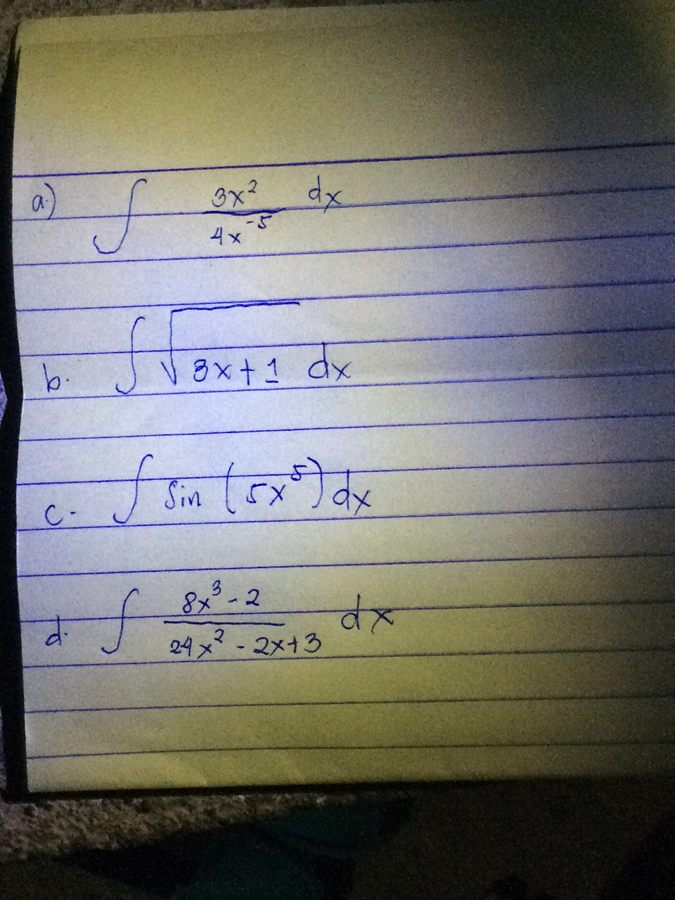 a.) ∫ 3x²/4x⁻⁵ dx
b. ∫ √3x+1 dx
c. ∫ sin (5x⁵) dx
d. ∫ 8x³-2/24x²-2x+3 dx